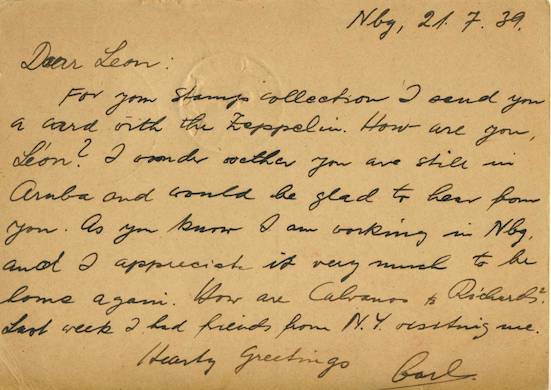 Nbg, 21. 7. 39.
Dear Leon:
For your stamps collection I send you
a card with the Zeppelin. How are you,
Léon? I wonder wether you are still in
Aruba and would be glad to hear from
you. As you know I am working in Nbg,
and I appreciate it very much to be
home again. How are Calvanos & Richards?
Last week I had friends from N.Y. visiting me.
Hearty Greetings
Carl.